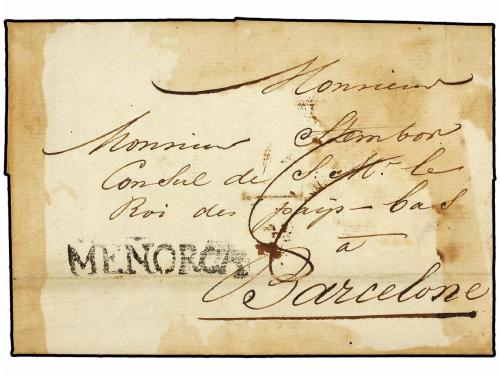 Monsieur
Monsieur Stembor
Consul de S. Mt. le
Roi des païs-bas
à
MENORCA
Barcelone